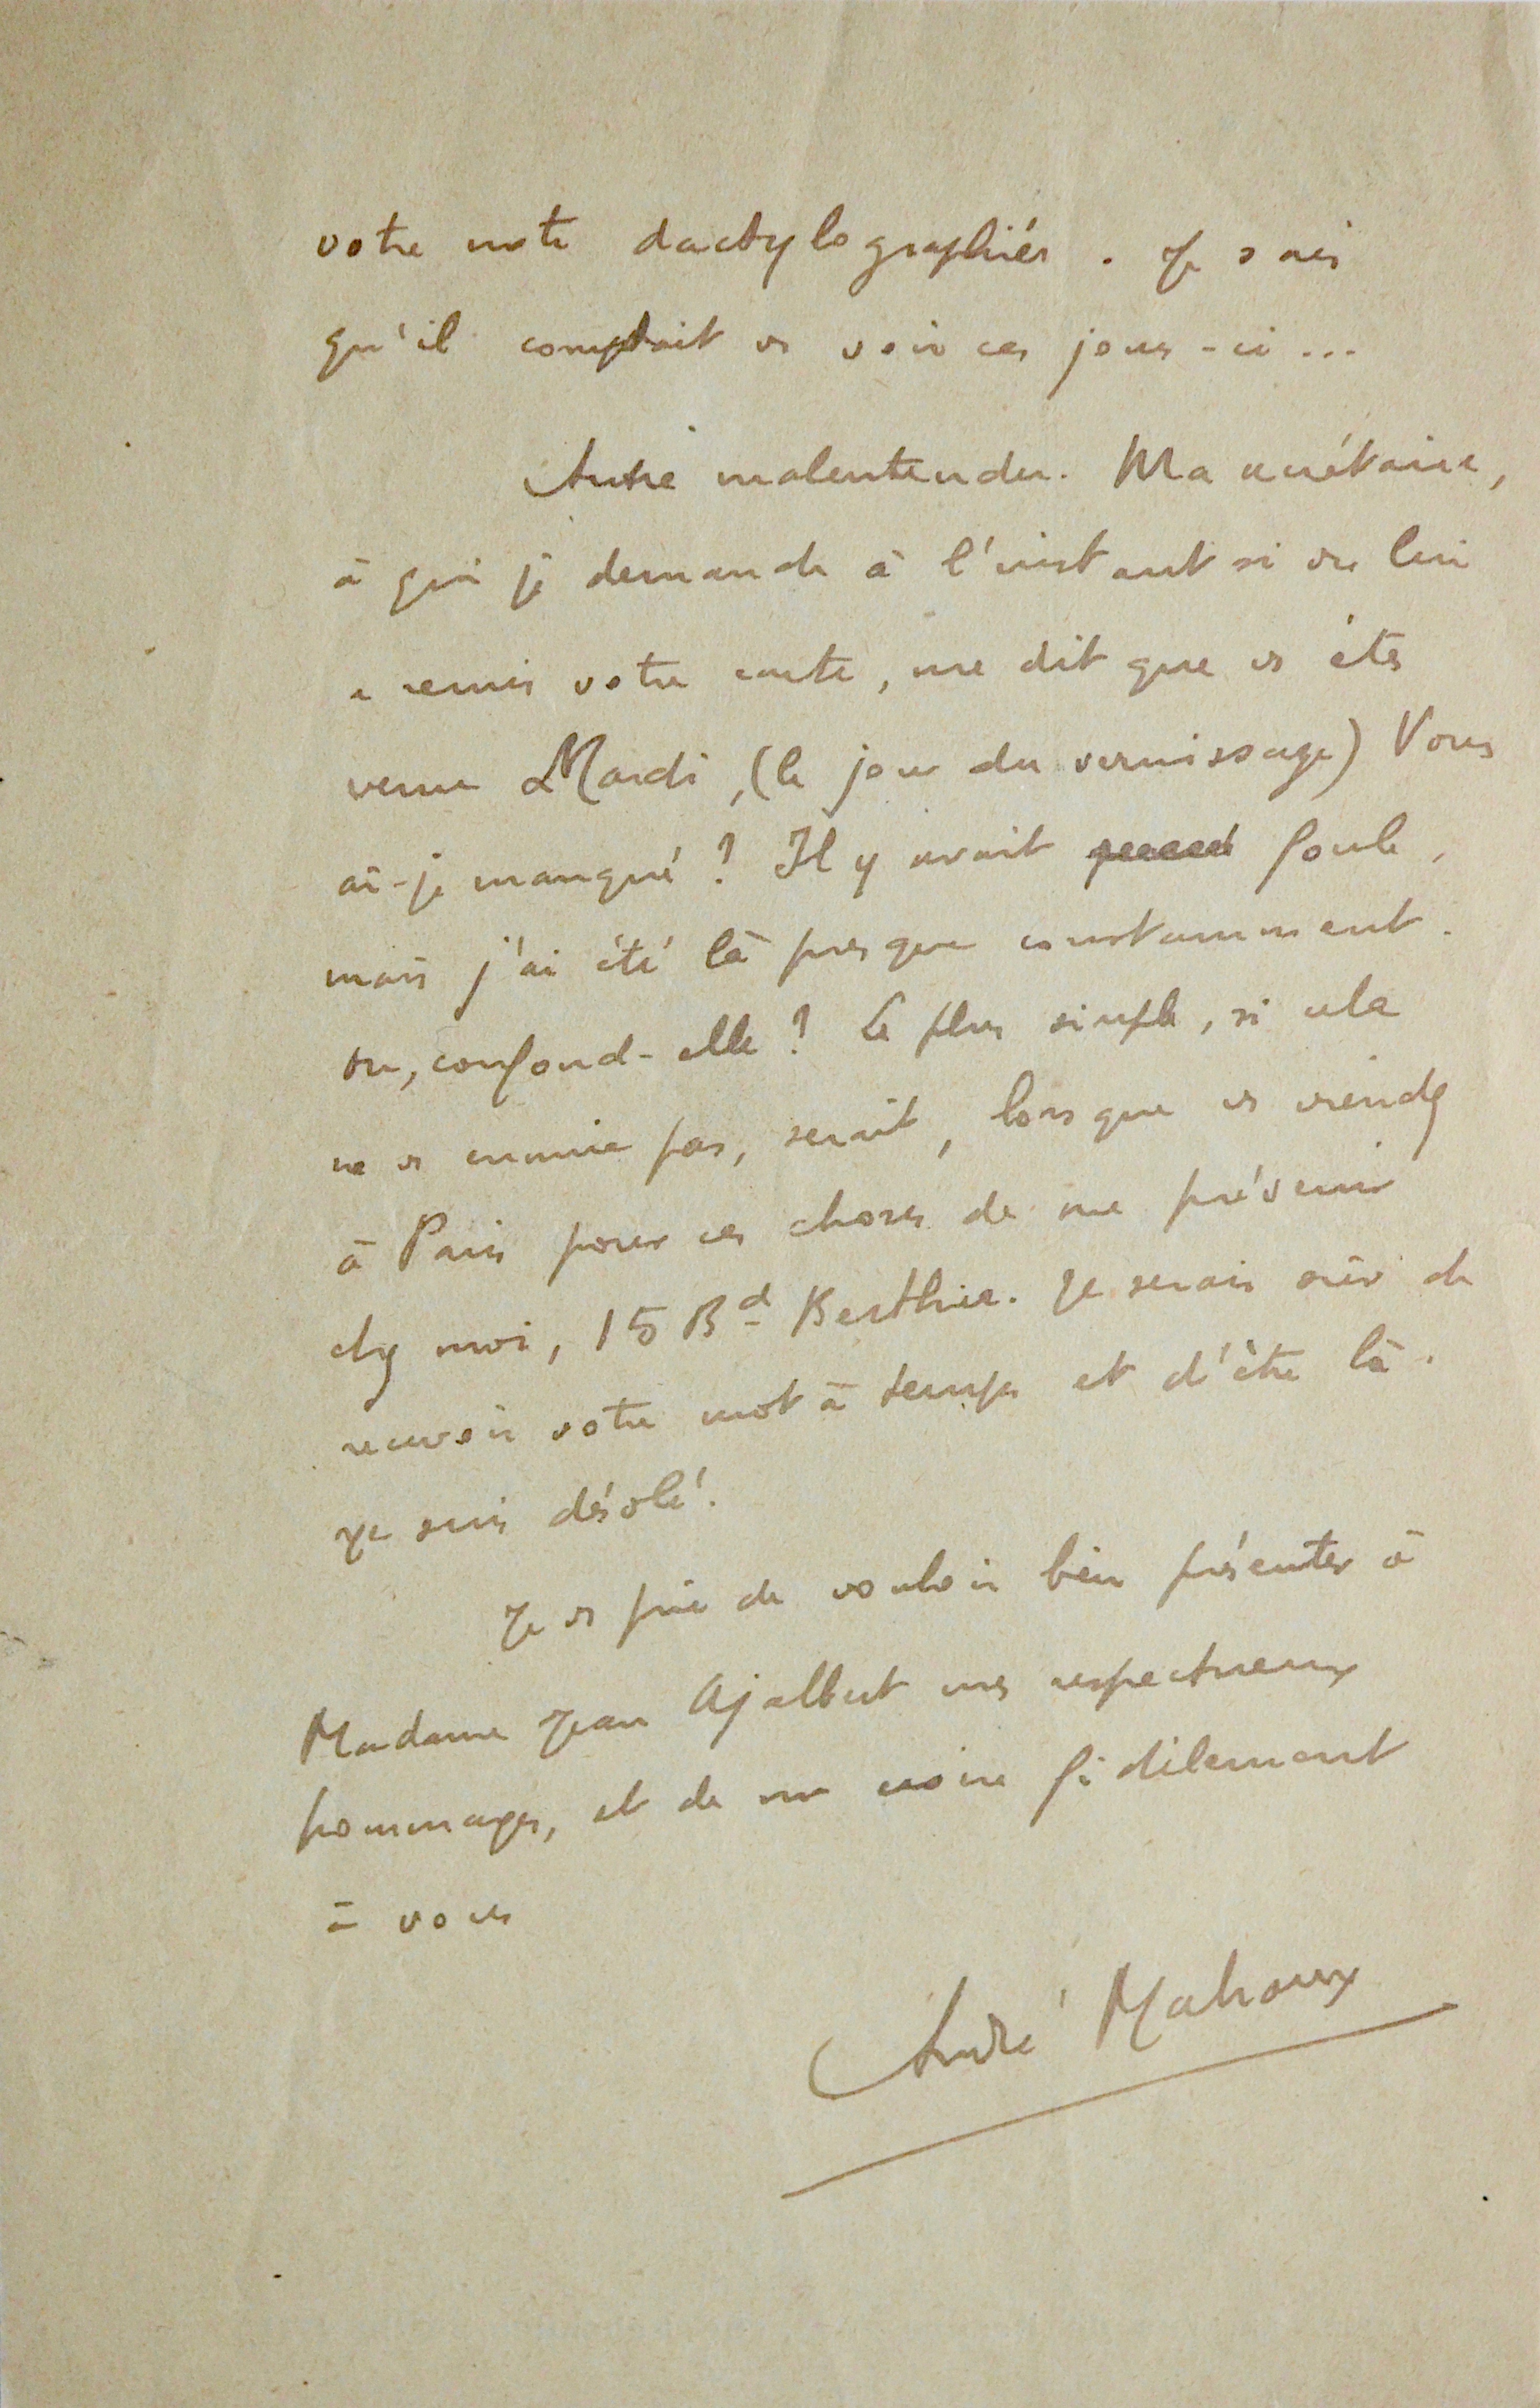 votre note dactylographiée. Je sais
qu'il comptait vs voir ces jours-ci...
Autre malentendu. Ma secrétaire,
à qui je demande à l'instant si on lui
a remis votre carte, me dit que vs êtes
venu Mardi, (le jour du vernissage) Vous
ai-je manqué ? Il y avait foule,
mais j'ai été là presque constamment.
ou, confond-elle ? Le plus simple, si cela
ne vs ennuie pas, serait, lorsque vs viendez
à Paris pour ces choses de me prévenir
chez moi, 15 Bd Berthier. Je serais sûr de
recevoir votre mot à temps et d'être là.
Je suis désolé.
Je vs prie de vouloir bien présenter à
Madame Jean Ajalbert mes respectueux
hommages, et de me croire fidèlement
à vous
André Malraux